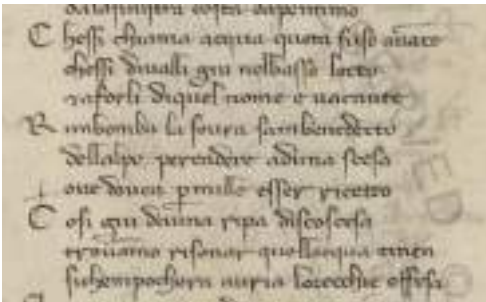 dalasinistra costa dapenino
C hessi chiama acqua queta suso avante
chessi divalli giu nelbasso lecto
a forli diquel nome e vacante
R imbomba li sovra sambenedetto
dellalpe per endere adima scesa
ove dovea p mille esser ricetto
C osi giu duna ripa discoscesa
trovamo risonar quellacqua tinta
sichempochora auria lorecchie offesa